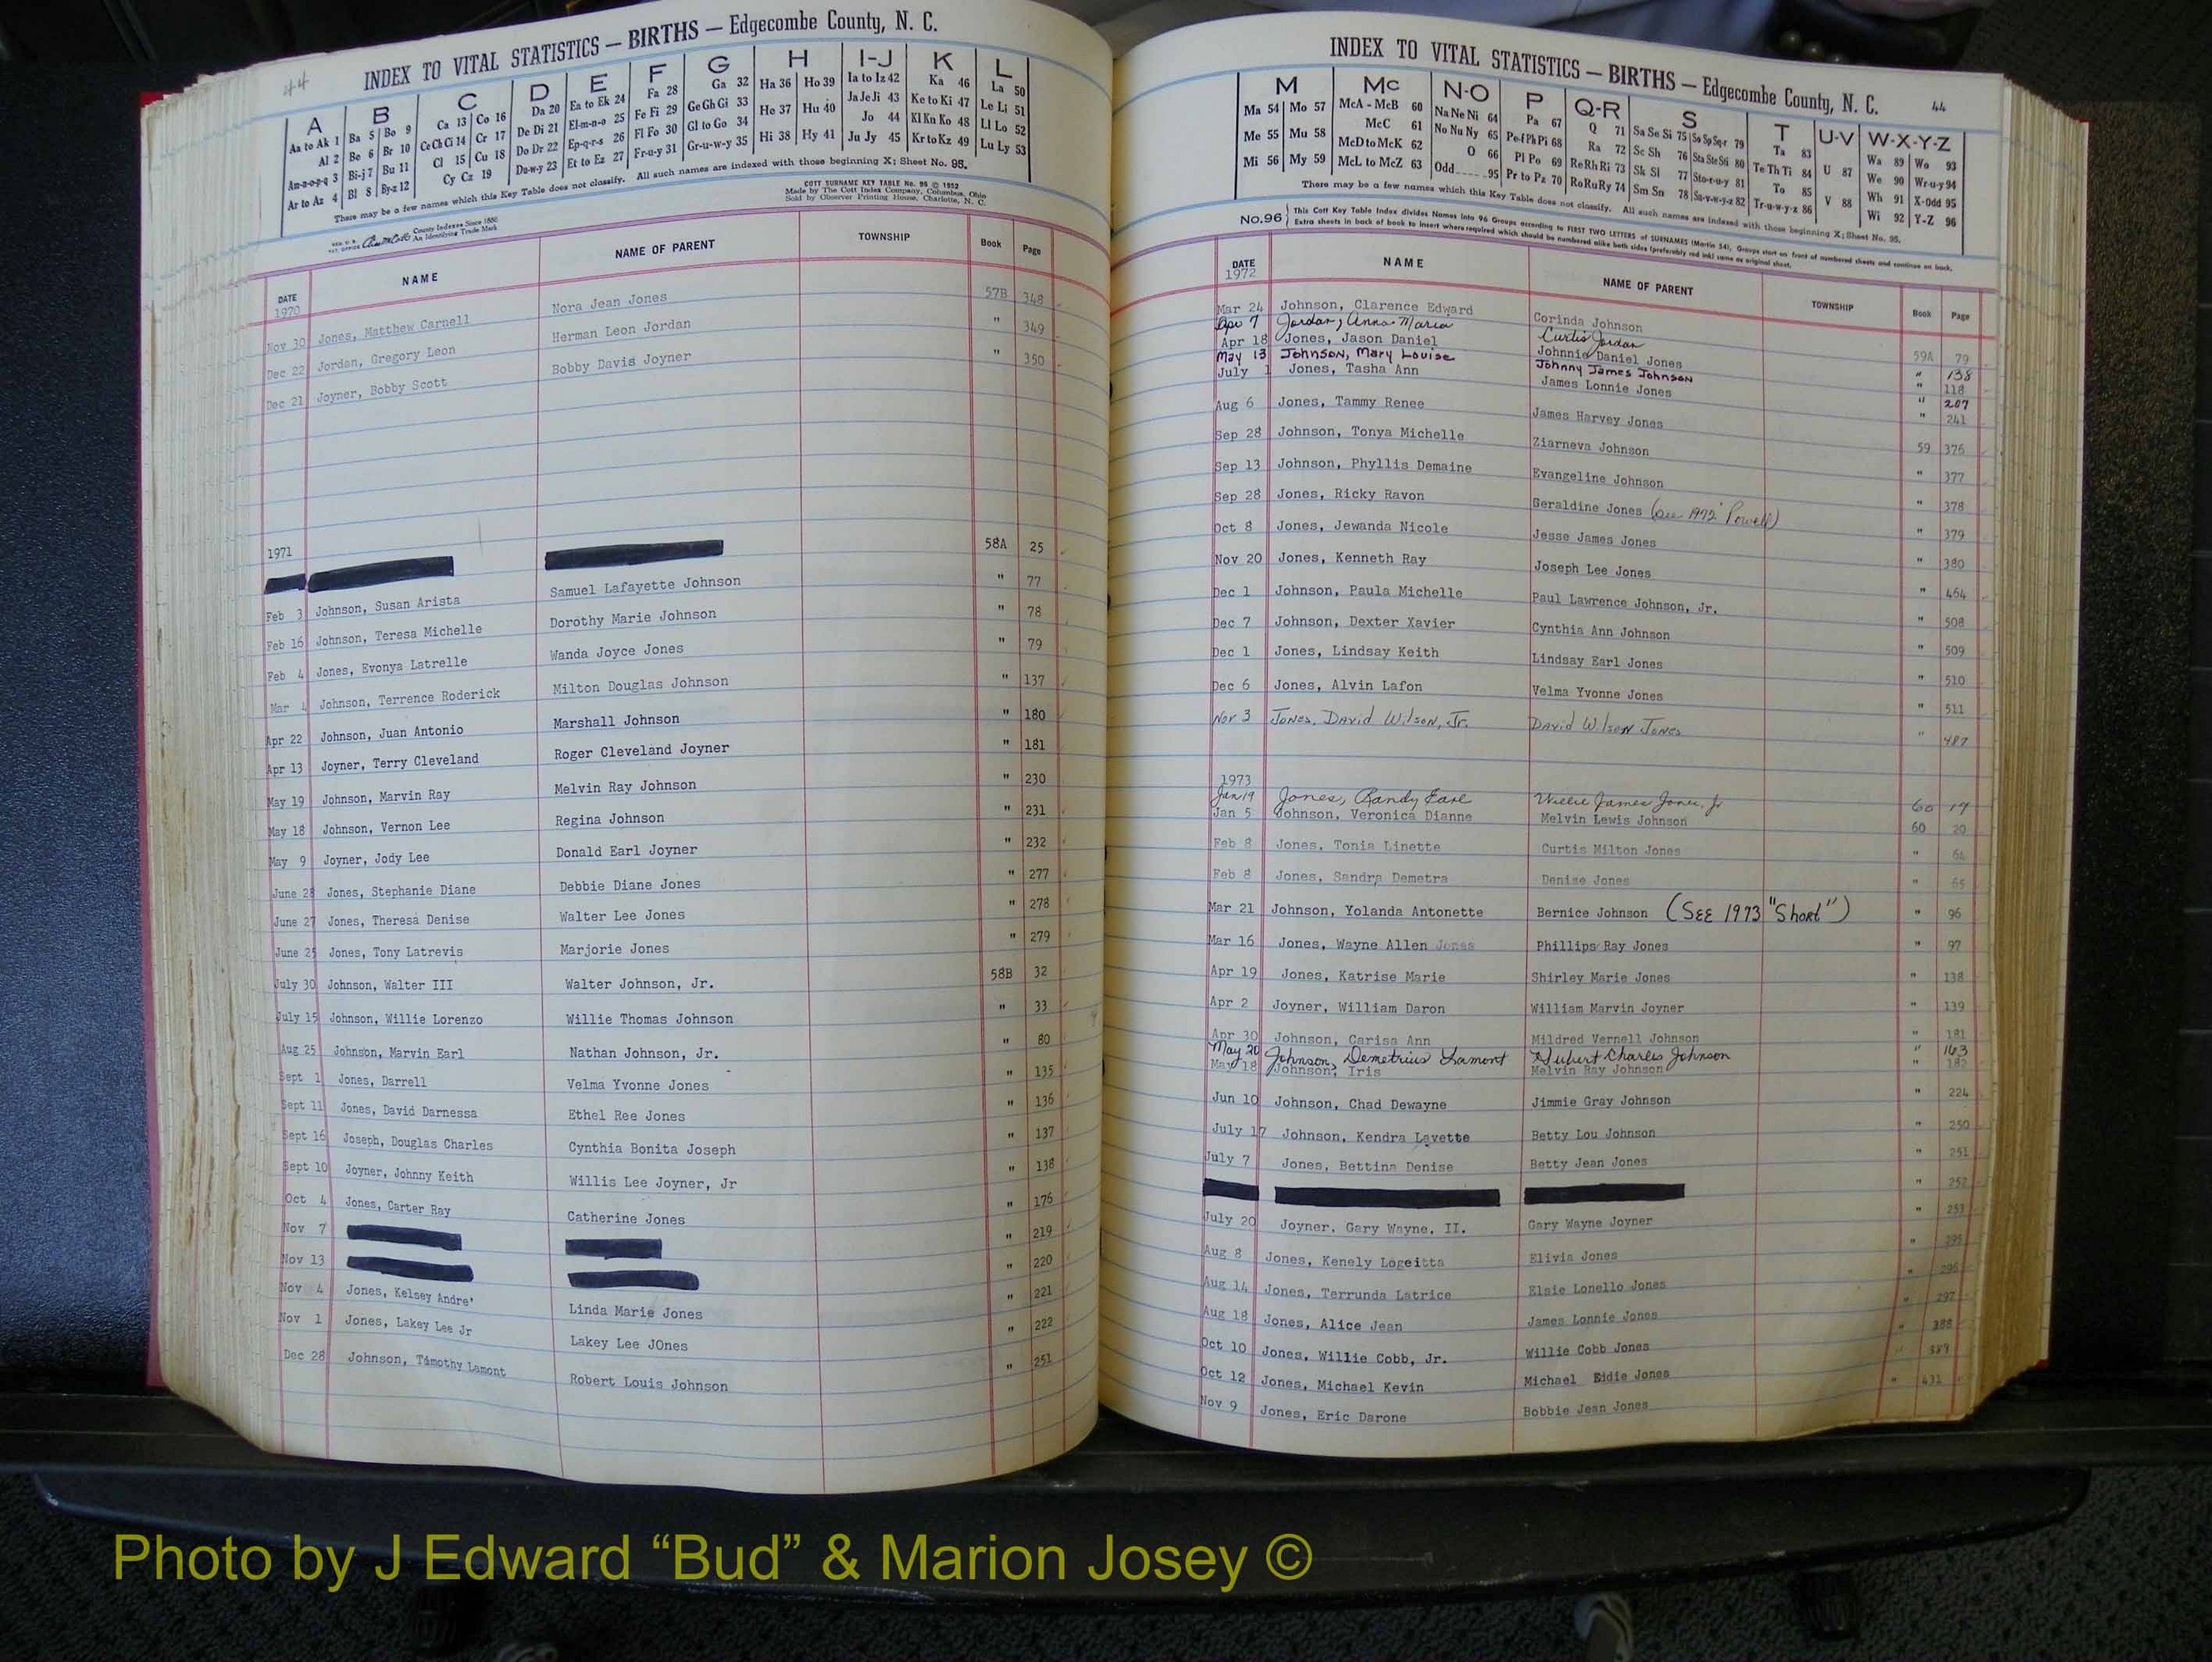 44
INDEX TO VITAL STATISTICS — BIRTHS — Edgecombe County, N. C.
A B C D E F G H I-J K L
Aa to Ak 1 Ba 5 Bo 9 Ca 13 Co 16 Da 20 Ea to Ek 24 Fa 28 Ga 32 Ha 36 Ho 39 Ia to Iz 42 Ka 46 La 50
Al 2 Be 6 Br 10 Ce Ch Ci 14 Cr 17 De Di 21 El-m-n-o 25 Fe Fi 29 Ge Gh Gi 33 He 37 Hu 40 Ja Je Ji 43 Ke to Ki 47 Le Li 51
Am-n-o-p-q 3 Bi-j 7 Bu 11 Cl 15 Cu 18 Do Dr 22 Ep-q-r-s 26 Fl Fo 30 Gl to Go 34 Hi 38 Hy 41 Jo 44 Kl Kn Ko 48 Ll Lo 52
Ar to Az 4 Bl 8 By-z 12 Cy Cz 19 Du-w-y 23 Et to Ez 27 Fr-u-y 31 Gr-u-w-y 35 Ju Jy 45 Kr to Kz 49 Lu Ly 53
There may be a few names which this Key Table does not classify. All such names are indexed with those beginning X; Sheet No. 95.
COTT SURNAME KEY TABLE No. 96 © 1952
Made by The Cott Index Company, Columbus, Ohio
Sold by Observer Printing House, Charlotte, N. C.
County Indexes Since 1888
An Identifying Trade Mark
DATE NAME NAME OF PARENT TOWNSHIP Book Page
1970
Nov 30 Jones, Matthew Carnell Nora Jean Jones 57B 348
Dec 22 Jordan, Gregory Leon Herman Leon Jordan " 349
Dec 21 Joyner, Bobby Scott Bobby Davis Joyner " 350
1971
58A 25
Feb 3 Johnson, Susan Arista Samuel Lafayette Johnson " 77
Feb 16 Johnson, Teresa Michelle Dorothy Marie Johnson " 78
Feb 4 Jones, Evonya Latrelle Wanda Joyce Jones " 79
Mar 4 Johnson, Terrence Roderick Milton Douglas Johnson " 137
Apr 22 Johnson, Juan Antonio Marshall Johnson " 180
Apr 13 Joyner, Terry Cleveland Roger Cleveland Joyner " 181
May 19 Johnson, Marvin Ray Melvin Ray Johnson " 230
May 18 Johnson, Vernon Lee Regina Johnson " 231
May 9 Joyner, Jody Lee Donald Earl Joyner " 232
June 28 Jones, Stephanie Diane Debbie Diane Jones " 277
June 27 Jones, Theresa Denise Walter Lee Jones " 278
June 25 Jones, Tony Latrevis Marjorie Jones " 279
July 30 Johnson, Walter III Walter Johnson, Jr. 58B 32
July 15 Johnson, Willie Lorenzo Willie Thomas Johnson " 33
Aug 25 Johnson, Marvin Earl Nathan Johnson, Jr. " 80
Sept 1 Jones, Darrell Velma Yvonne Jones " 135
Sept 11 Jones, David Darnessa Ethel Ree Jones " 136
Sept 16 Joseph, Douglas Charles Cynthia Bonita Joseph " 137
Sept 10 Joyner, Johnny Keith Willis Lee Joyner, Jr " 138
Oct 4 Jones, Carter Ray Catherine Jones " 176
Nov 7 " 219
Nov 13 " 220
Nov 4 Jones, Kelsey Andre' Linda Marie Jones " 221
Nov 1 Jones, Lakey Lee Jr Lakey Lee JOnes " 222
Dec 28 Johnson, Timothy Lamont Robert Louis Johnson " 251
INDEX TO VITAL STATISTICS — BIRTHS — Edgecombe County, N. C. 44
M Mc N-O P Q-R S T U-V W-X-Y-Z
Ma 54 Mo 57 McA - McB 60 Na Ne Ni 64 Pa 67 Q 71 Sa Se Si 75 So Sp Sq-r 79 Ta 83 U 87 Wa 89 Wo 93
Me 55 Mu 58 McC 61 No Nu Ny 65 Pe-f Ph Pi 68 Ra 72 Sc Sh 76 Sta Ste Sti 80 Te Th Ti 84 V 88 We 90 Wr-u-y 94
Mi 56 My 59 McD to McK 62 O 66 Pl Po 69 Re Rh Ri 73 Sk Sl 77 Sto-r-u-y 81 To 85 Wh 91 X-Odd 95
McL to McZ 63 Odd 95 Pr to Pz 70 Ro Ru Ry 74 Sm Sn 78 Su-v-w-y-z 82 Tr-u-w-y-z 86 Wi 92 Y-Z 96
There may be a few names which this Key Table does not classify. All such names are indexed with those beginning X; Sheet No. 95.
No. 96 This Cott Key Table Index divides Names into 96 Groups according to FIRST TWO LETTERS of SURNAMES (Martin 54). Groups start on front of numbered sheets and continue on back.
Extra sheets in back of book to insert where required which should be numbered alike both sides (preferably red ink) same as original sheet.
DATE NAME NAME OF PARENT TOWNSHIP Book Page
1972
Mar 24 Johnson, Clarence Edward Corinda Johnson 59A 79
Apr 7 Jordan, Anna Maria Curtis Jordan " 138
Apr 18 Jones, Jason Daniel Johnnie Daniel Jones " 118
May 13 Johnson, Mary Louise Johnny James Johnson " 207
July 1 Jones, Tasha Ann James Lonnie Jones " 241
Aug 6 Jones, Tammy Renee James Harvey Jones 59 376
Sep 28 Johnson, Tonya Michelle Ziarneva Johnson " 377
Sep 13 Johnson, Phyllis Demaine Evangeline Johnson " 378
Sep 28 Jones, Ricky Ravon Geraldine Jones (see 1972 Powell) " 379
Oct 8 Jones, Jewanda Nicole Jesse James Jones " 380
Nov 20 Jones, Kenneth Ray Joseph Lee Jones " 464
Dec 1 Johnson, Paula Michelle Paul Lawrence Johnson, Jr. " 508
Dec 7 Johnson, Dexter Xavier Cynthia Ann Johnson " 509
Dec 1 Jones, Lindsay Keith Lindsay Earl Jones " 510
Dec 6 Jones, Alvin Lafon Velma Yvonne Jones " 511
Nov 3 Jones, David Wilson, Jr. David Wilson Jones " 487
1973
Jan 19 Jones, Randy Earl Willie James Jones, Jr 60 19
Jan 5 Johnson, Veronica Dianne Melvin Lewis Johnson 60 20
Feb 8 Jones, Tonia Linette Curtis Milton Jones " 64
Feb 8 Jones, Sandra Demetra Denise Jones " 65
Mar 21 Johnson, Yolanda Antonette Bernice Johnson (SEE 1973 "Short") " 96
Mar 16 Jones, Wayne Allen Jones Phillips Ray Jones " 97
Apr 19 Jones, Katrise Marie Shirley Marie Jones " 138
Apr 2 Joyner, William Daron William Marvin Joyner " 139
Apr 30 Johnson, Carisa Ann Mildred Vernell Johnson " 181
May 20 Johnson, Demetrius Lamont Hubert Charles Johnson " 163
May 18 Johnson, Iris Melvin Ray Johnson " 182
Jun 10 Johnson, Chad Dewayne Jimmie Gray Johnson " 224
July 17 Johnson, Kendra Lavette Betty Lou Johnson " 250
July 7 Jones, Bettina Denise Betty Jean Jones " 251
" 252
July 20 Joyner, Gary Wayne, II. Gary Wayne Joyner " 253
Aug 8 Jones, Kenely Logeitta Elivia Jones " 295
Aug 14 Jones, Terrunda Latrice Elsie Lonello Jones " 296
Aug 18 Jones, Alice Jean James Lonnie Jones " 297
Oct 10 Jones, Willie Cobb, Jr. Willie Cobb Jones " 388
Oct 12 Jones, Michael Kevin Michael Eddie Jones " 389
Nov 9 Jones, Eric Darone Bobbie Jean Jones " 431
Photo by J Edward “Bud” & Marion Josey ©